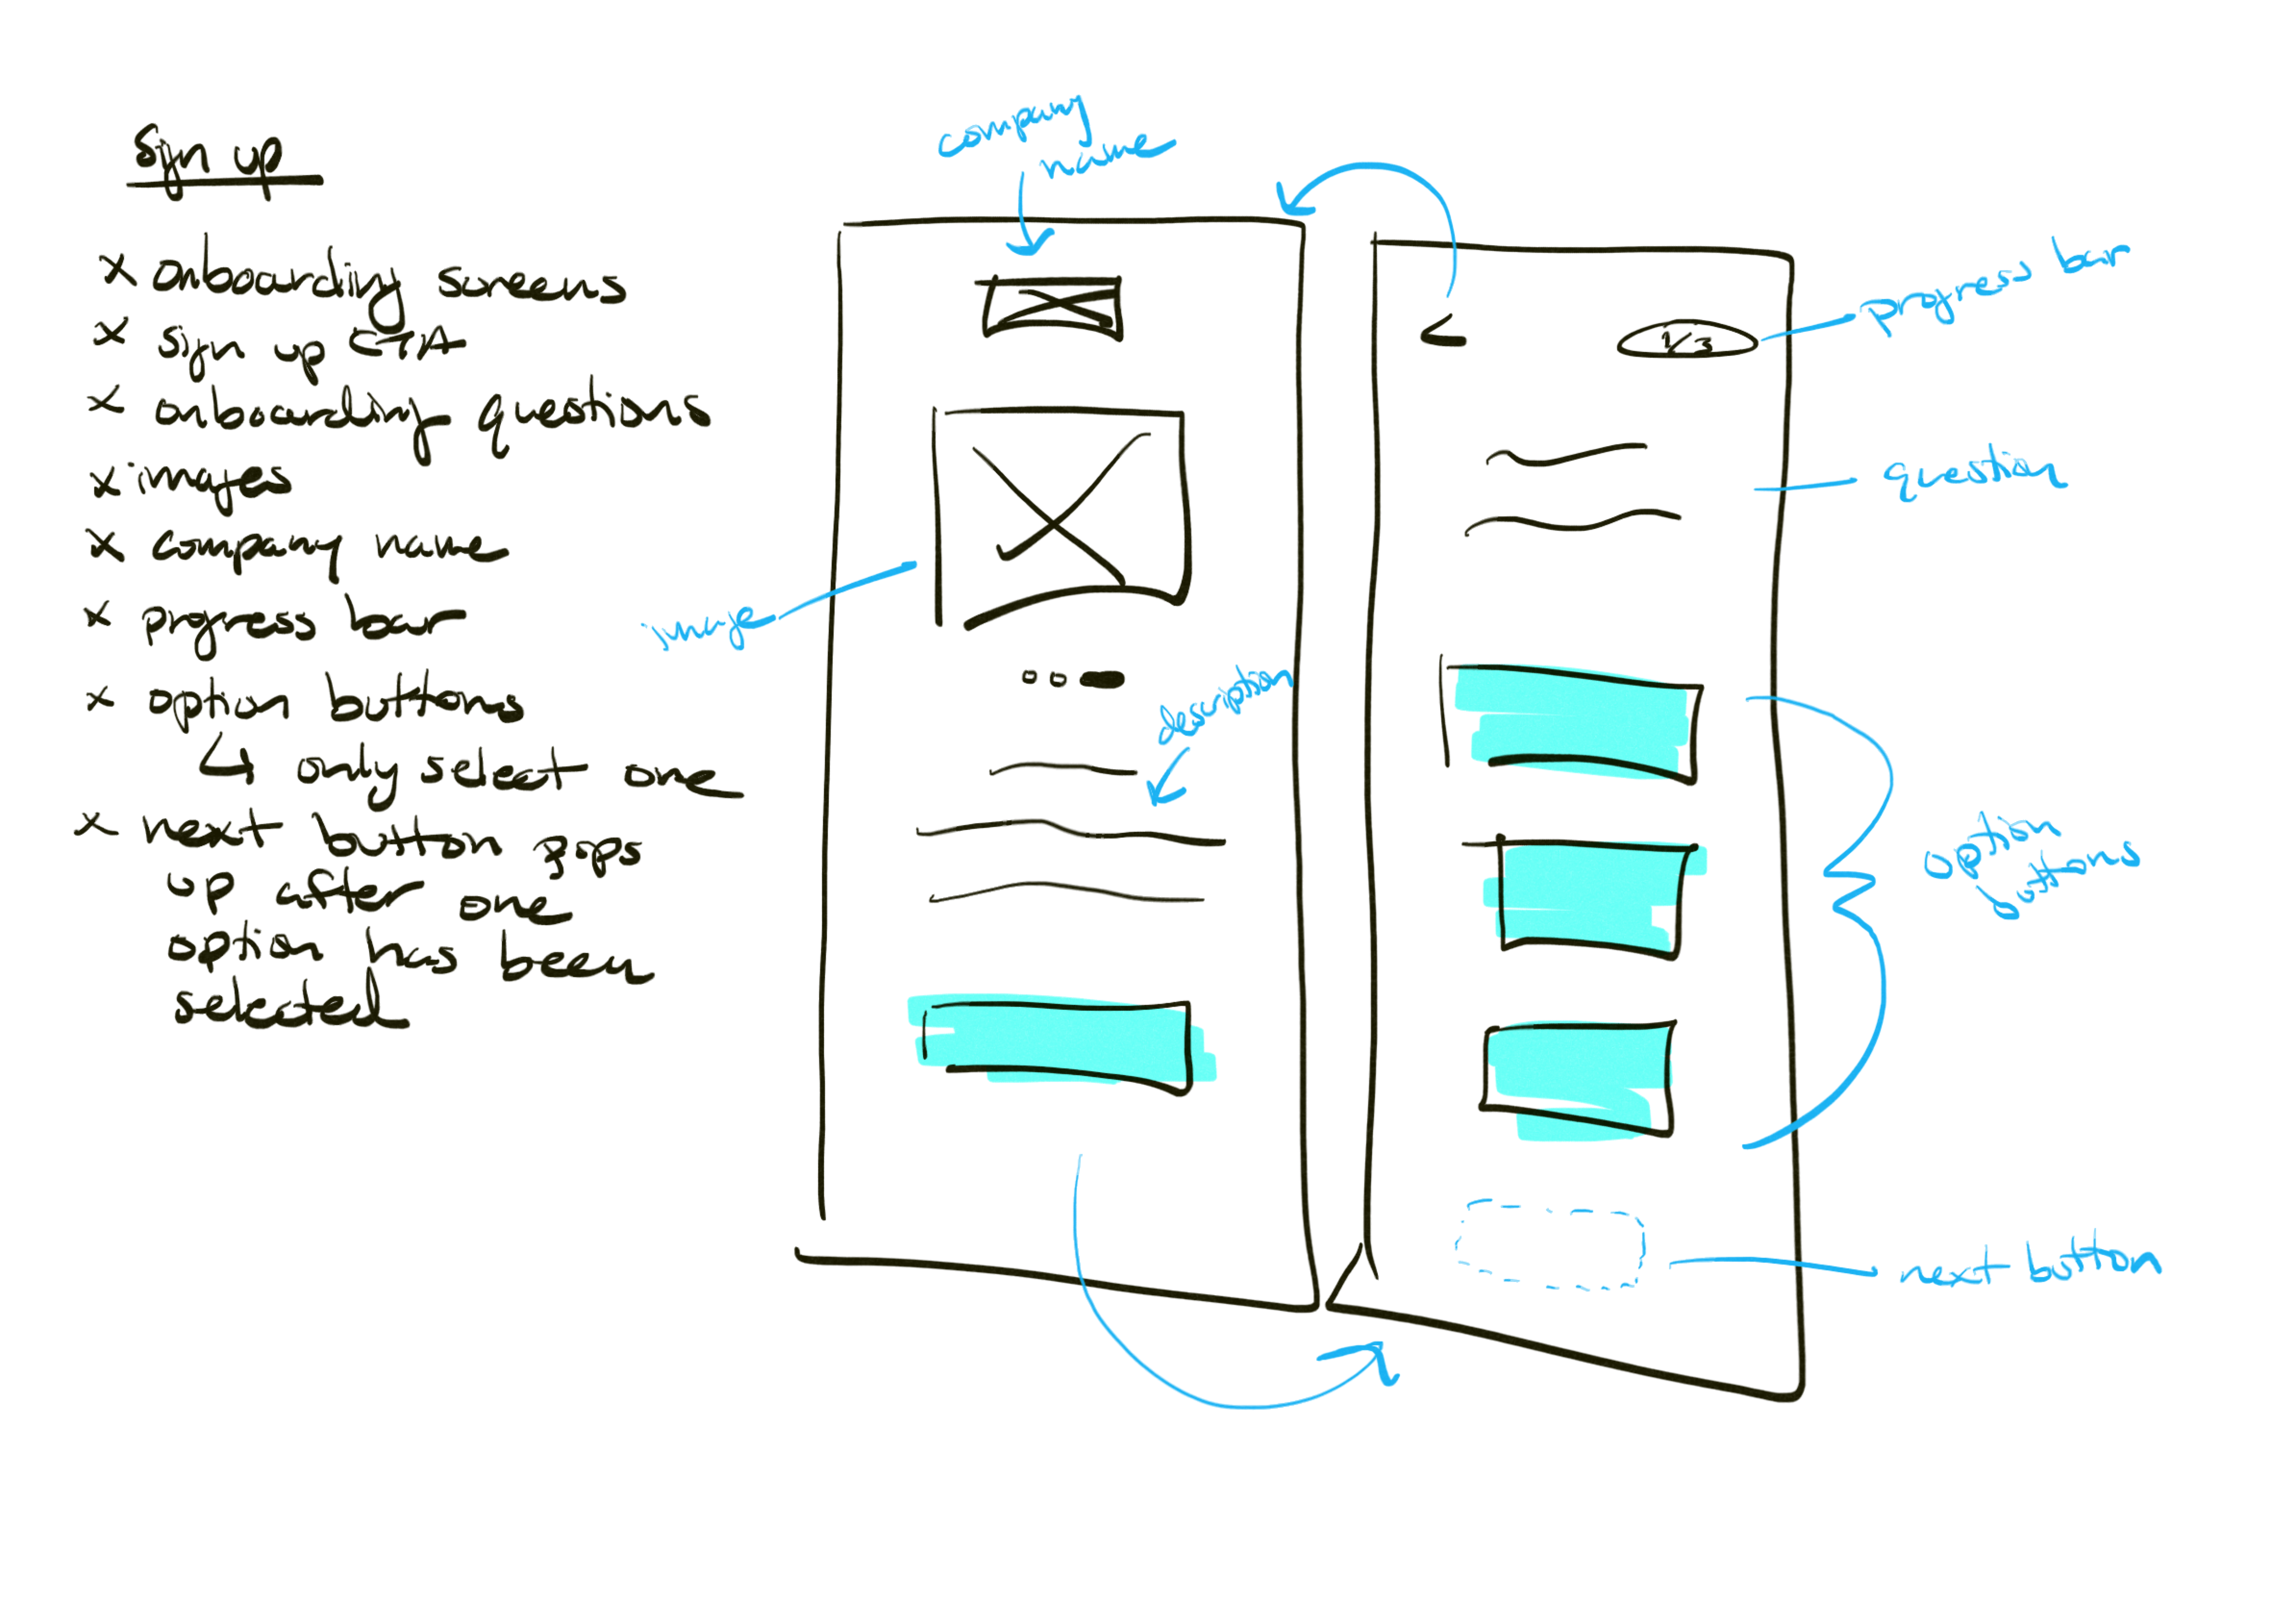 Sign up
x onboarding screens
x sign up CTA
x onboarding questions
x images
x company name
x progress bar
x option buttons
↳ only select one
x next button pops
up after one
option has been
selected
company
name
image
description
1/3
progress bar
question
option
buttons
next button